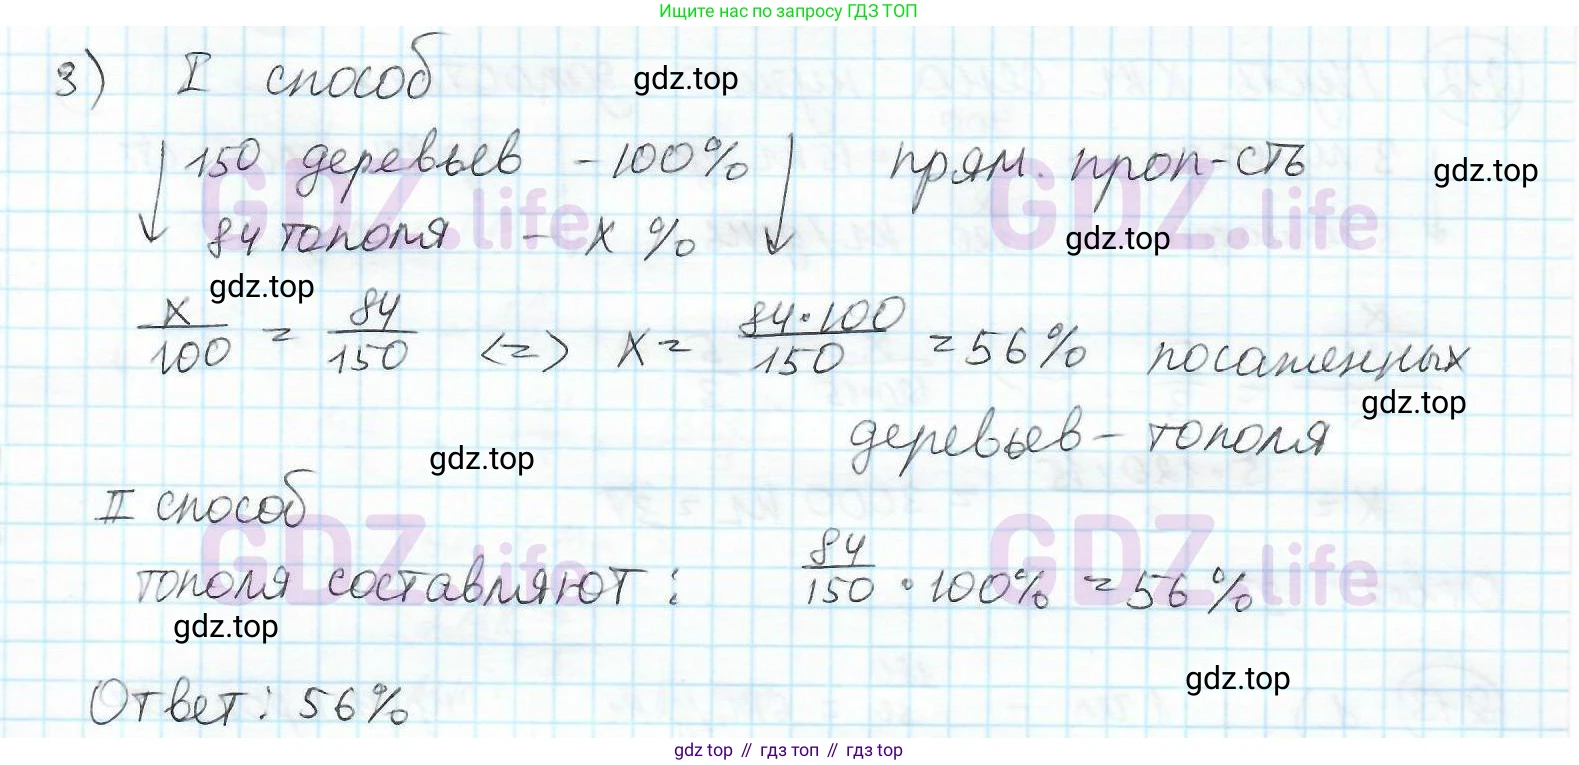 Ищите нас по запросу ГДЗ ТОП
3) I способ gdz.top
150 деревьев - 100% прям. проп-сть gdz.top
84 тополя - x % gdz.top
gdz.top
x/100 = 84/150 <=> x = 84·100/150 = 56% посаженных
gdz.top
деревьев - тополя
gdz.top
II способ
GDZ.life GDZ.life
GDZ.life GDZ.life
тополя составляют: 84/150 · 100% = 56%
gdz.top
gdz.top
Ответ: 56%
gdz top // гдз топ // гдз top